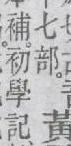 七部
黃
補初學記